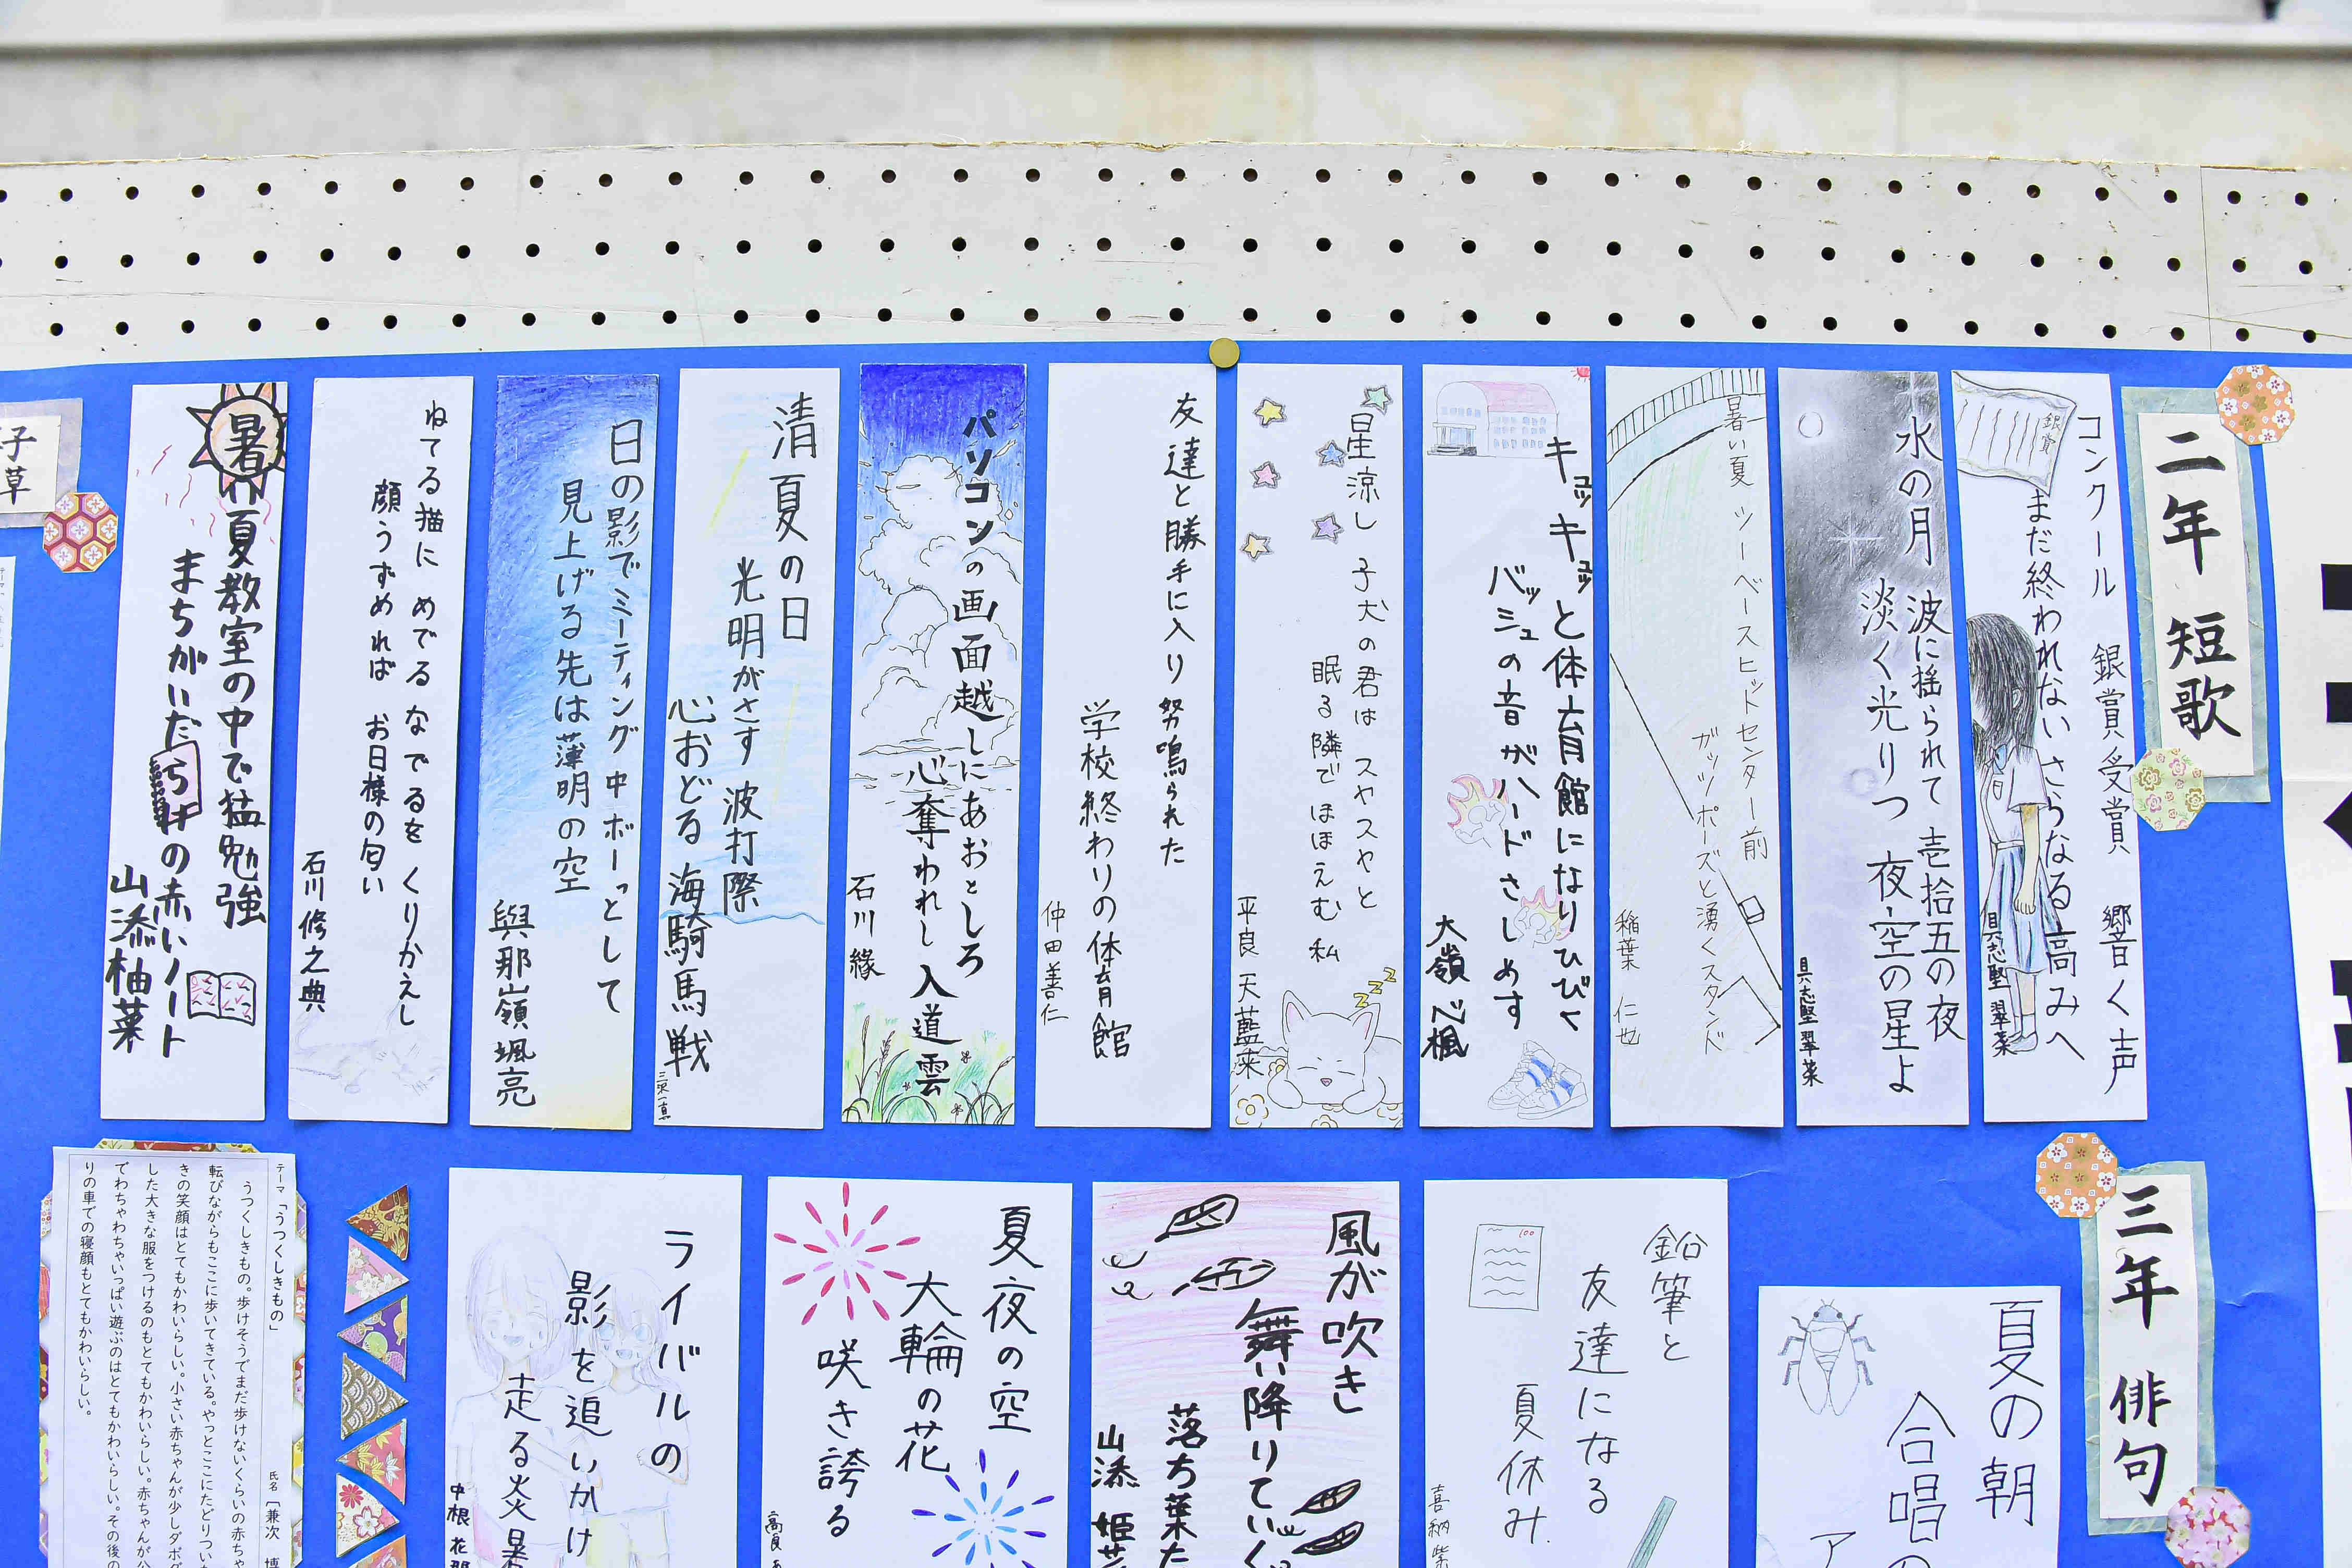 二年 短歌
コンクール 銀賞受賞 響く声
まだ終われないさらなる高みへ
具志堅 翠菜
銀賞
水の月 波に揺られて 壱拾五の夜
淡く光りつ 夜空の星よ
具志堅 翠菜
暑い夏 ツーベースヒットセンター前
ガッツポーズと湧くスタンド
稲葉 仁也
キュッキュッと体育館になりひびく
バッシュの音がハードさしめす
大嶺 心楓
星涼し 子犬の君は スヤスヤと
眠る隣で ほほえむ 私
平良 天藍来
友達と勝手に入り 努鳴られた
学校終わりの体育館
仲田善仁
パソコンの画面越しにあおとしろ
心奪われし 入道雲
石川 縁
清夏の日
光明がさす 波打際
心おどる 海騎馬戦
日の影でミーティング中ボーっとして
見上げる先は薄明の空
與那嶺颯亮
ねてる猫に めでる なでるを くりかえし
顔うずめれば お日様の匂い
石川修之典
暑い夏教室の中で猛勉強
まちがいだらけの赤いノート
山添柚菜
三年 俳句
夏の朝
合唱の
ア
鉛筆と
友達になる
夏休み
100
風が吹き
舞い降りていく
落ち葉た
山添 姫
夏夜の空
大輪の花
咲き誇る
高良
ライバルの
影を追いかけ
走る炎暑
中根 花
テーマ「うつくしきもの」
氏名〔兼次 博
うつくしきもの。歩けそうでまだ歩けないくらいの赤ちゃ
転びながらもここに歩いてきている。やっとここにたどりつい
きの笑顔はとてもかわいらしい。小さい赤ちゃんが少しダボダ
した大きな服をつけるのもとてもかわいらしい。赤ちゃんが公
でわちゃわちゃいっぱい遊ぶのはとてもかわいらしい。その後の
りの車での寝顔もとてもかわいらしい。
子草